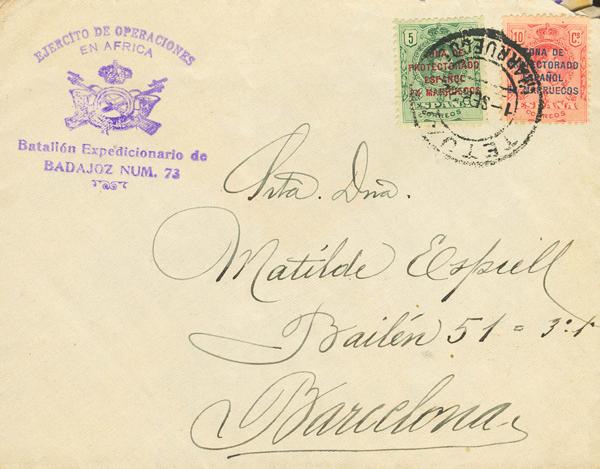 EJERCITO DE OPERACIONES
EN AFRICA
Batallón Expedicionario de
BADAJOZ NUM. 73
5
ZONA DE
PROTECTORADO
ESPAÑOL
EN MARRUECOS
CORREOS
10 Cs
ZONA DE
PROTECTORADO
ESPAÑOL
MARRUECOS
CORREOS
TETU
MARRUECOS
1-SE
Srta. Dña.
Matilde Espiell
Bailén 51 = 3º 1ª
Barcelona